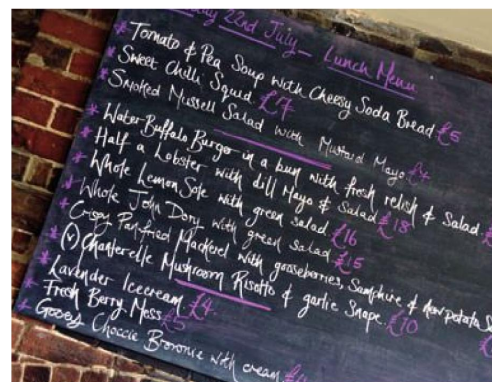 22nd July - Lunch Menu
* Tomato & Pea Soup with Cheesy Soda Bread £5
* Sweet Chilli Squid £7
* Smoked Mussell Salad with Mustard Mayo £7
* Water Buffalo Burger in a bun with fresh relish & Salad £
* Half a Lobster with dill Mayo & Salad £18
* Whole Lemon Sole with green salad £16
* Whole John Dory with green salad £15
* Crispy Panfried Mackerel with gooseberries, Samphire & new potato
* (v) Chanterelle Mushroom Risotto & garlic Snape £10
* Lavender Icecream £4
* Fresh Berry Mess £5
* Gooey Choccie Brownie with cream